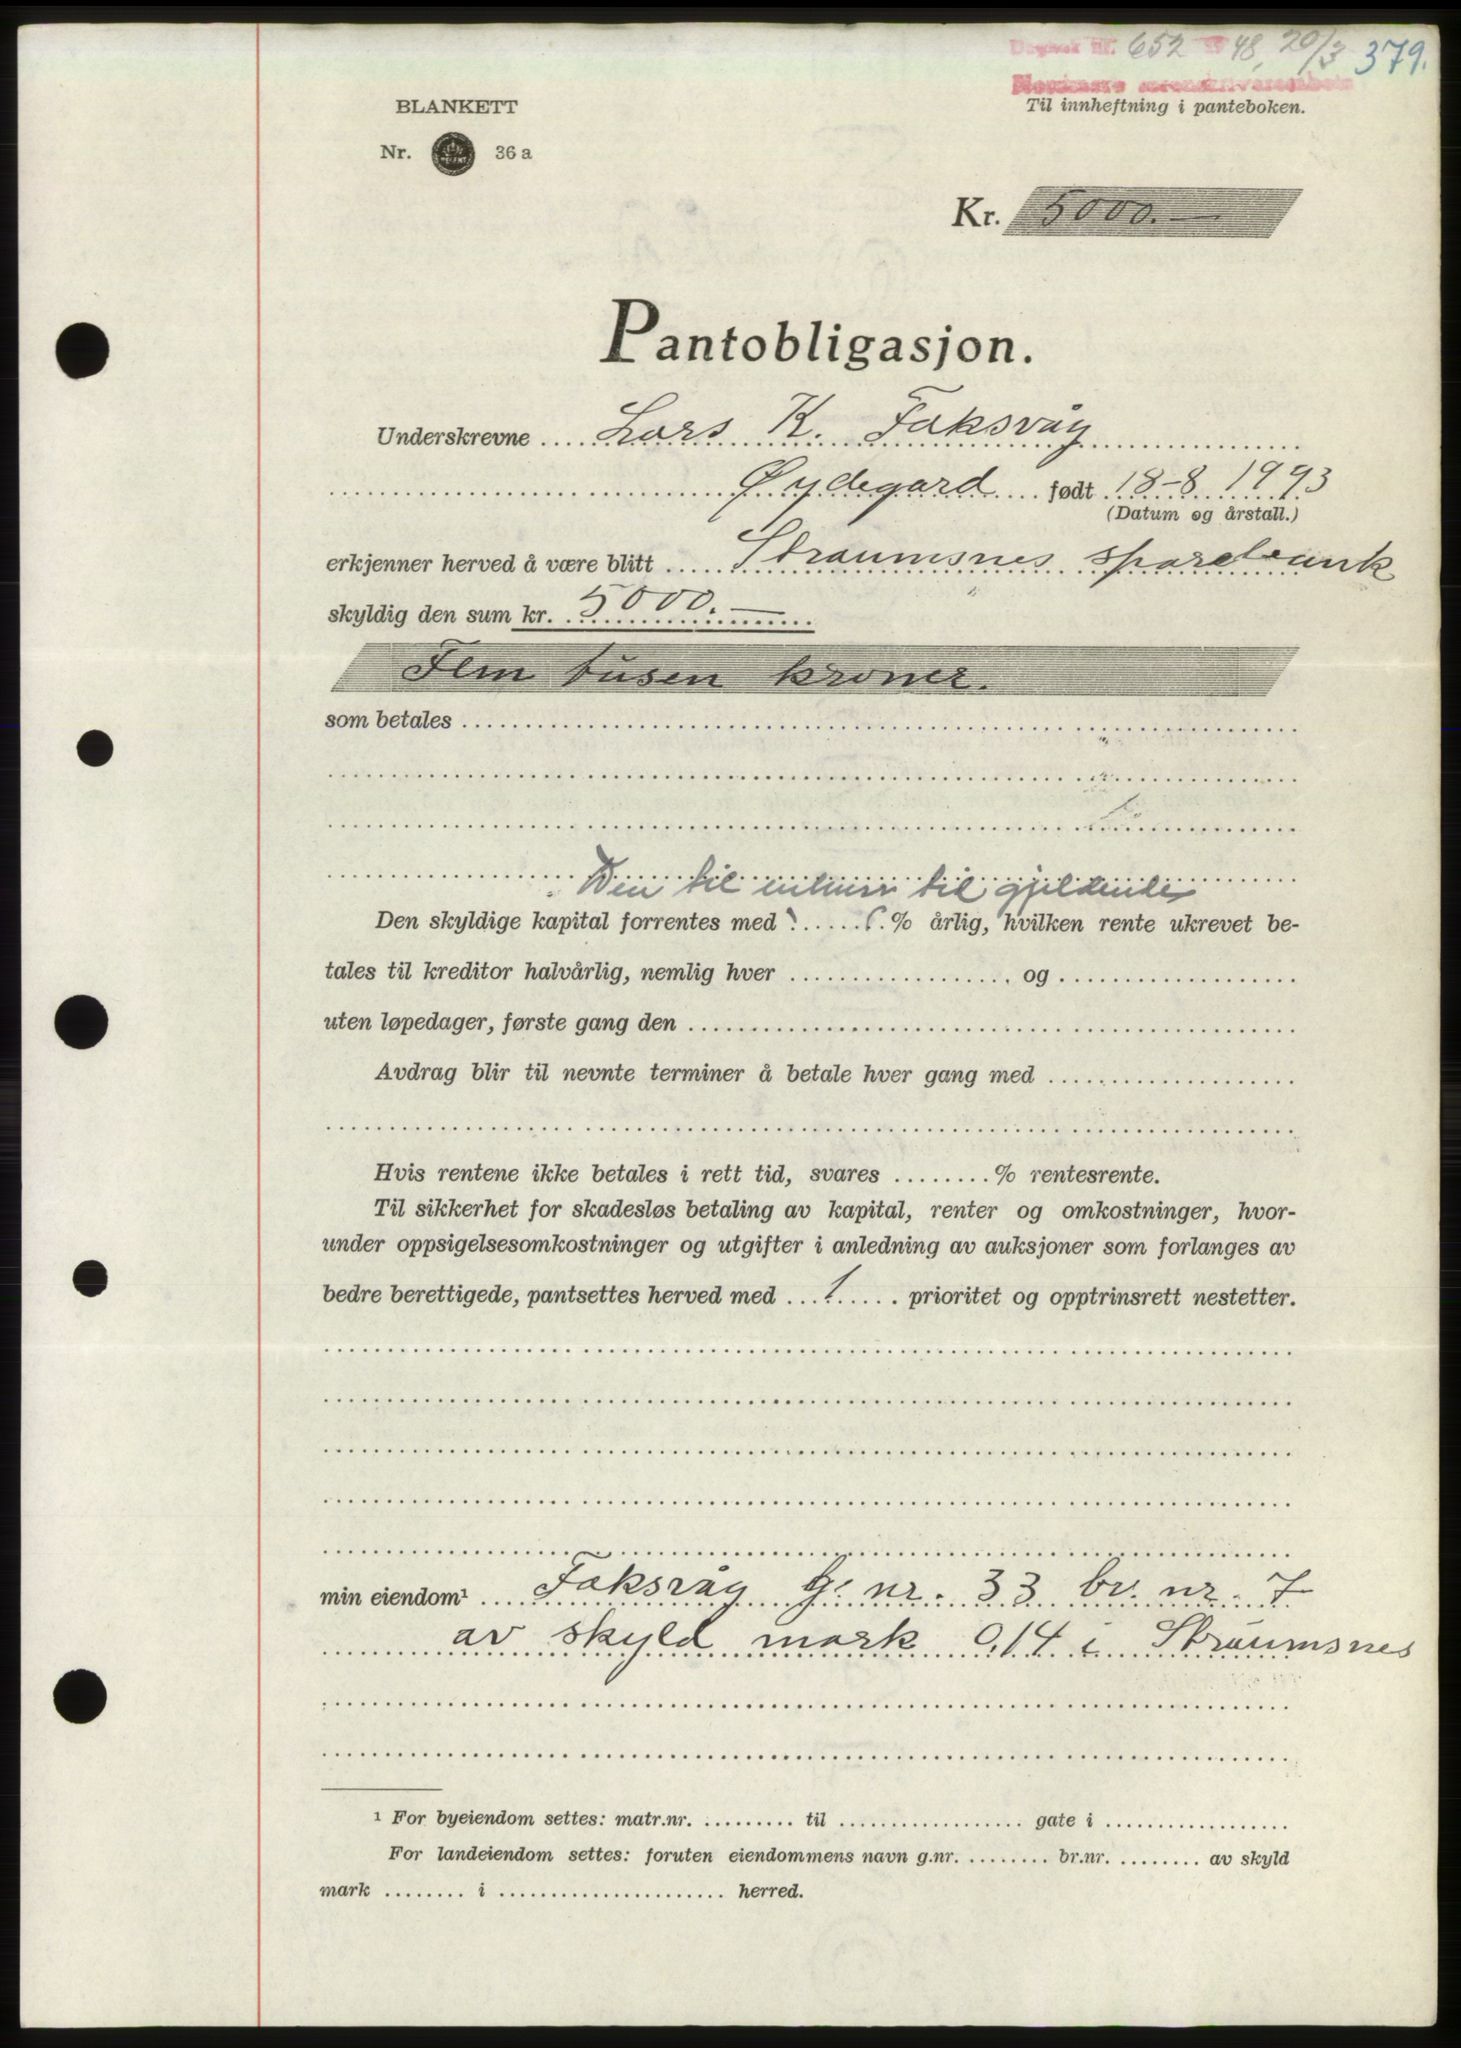 Dagbok nr. 652 1948, 20/3 379.
Til innheftning i panteboken.
BLANKETT
Nr. 36 a
Kr. 5000.—
Pantobligasjon.
Underskrevne Lars K. Faksvåg
Øydegard født 18-8 1993
(Datum og årstall.)
erkjenner herved å være blitt Straumsnes sparebank
skyldig den sum kr. 5000.—
Fem tusen kroner.
som betales
Den til enhver til gjeldende
Den skyldige kapital forrentes med % årlig, hvilken rente ukrevet be-
tales til kreditor halvårlig, nemlig hver og
uten løpedager, første gang den
Avdrag blir til nevnte terminer å betale hver gang med
Hvis rentene ikke betales i rett tid, svares % rentesrente.
Til sikkerhet for skadesløs betaling av kapital, renter og omkostninger, hvor-
under oppsigelsesomkostninger og utgifter i anledning av auksjoner som forlanges av
bedre berettigede, pantsettes herved med 1 prioritet og opptrinsrett nestetter.
min eiendom¹ Faksvåg G. nr. 33 br. nr. 7
av skyld mark 0,14 i Straumsnes
¹ For byeiendom settes: matr.nr. til gate i
For landeiendom settes: foruten eiendommens navn g.nr. br.nr. av skyld
mark i herred.